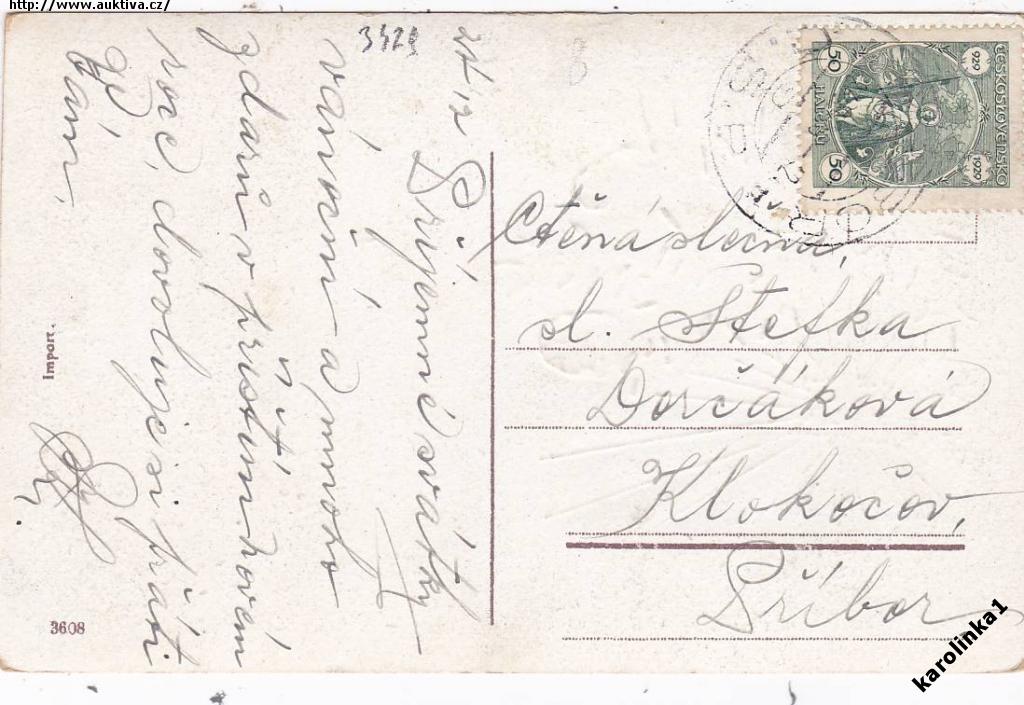 http://www.auktiva.cz/
3429
24/12
Příjemné svátky
vánoční a mnoho
zdaru v příštím novém
roce, dovoluje si přáti
Vám,
Ctěná slečna,
sl. Štefka
Dorčáková
Klokočov,
Příbor
ČESKOSLOVENSKO
929 1929
50 HALÉŘŮ 50
Import.
3608
karolinka1